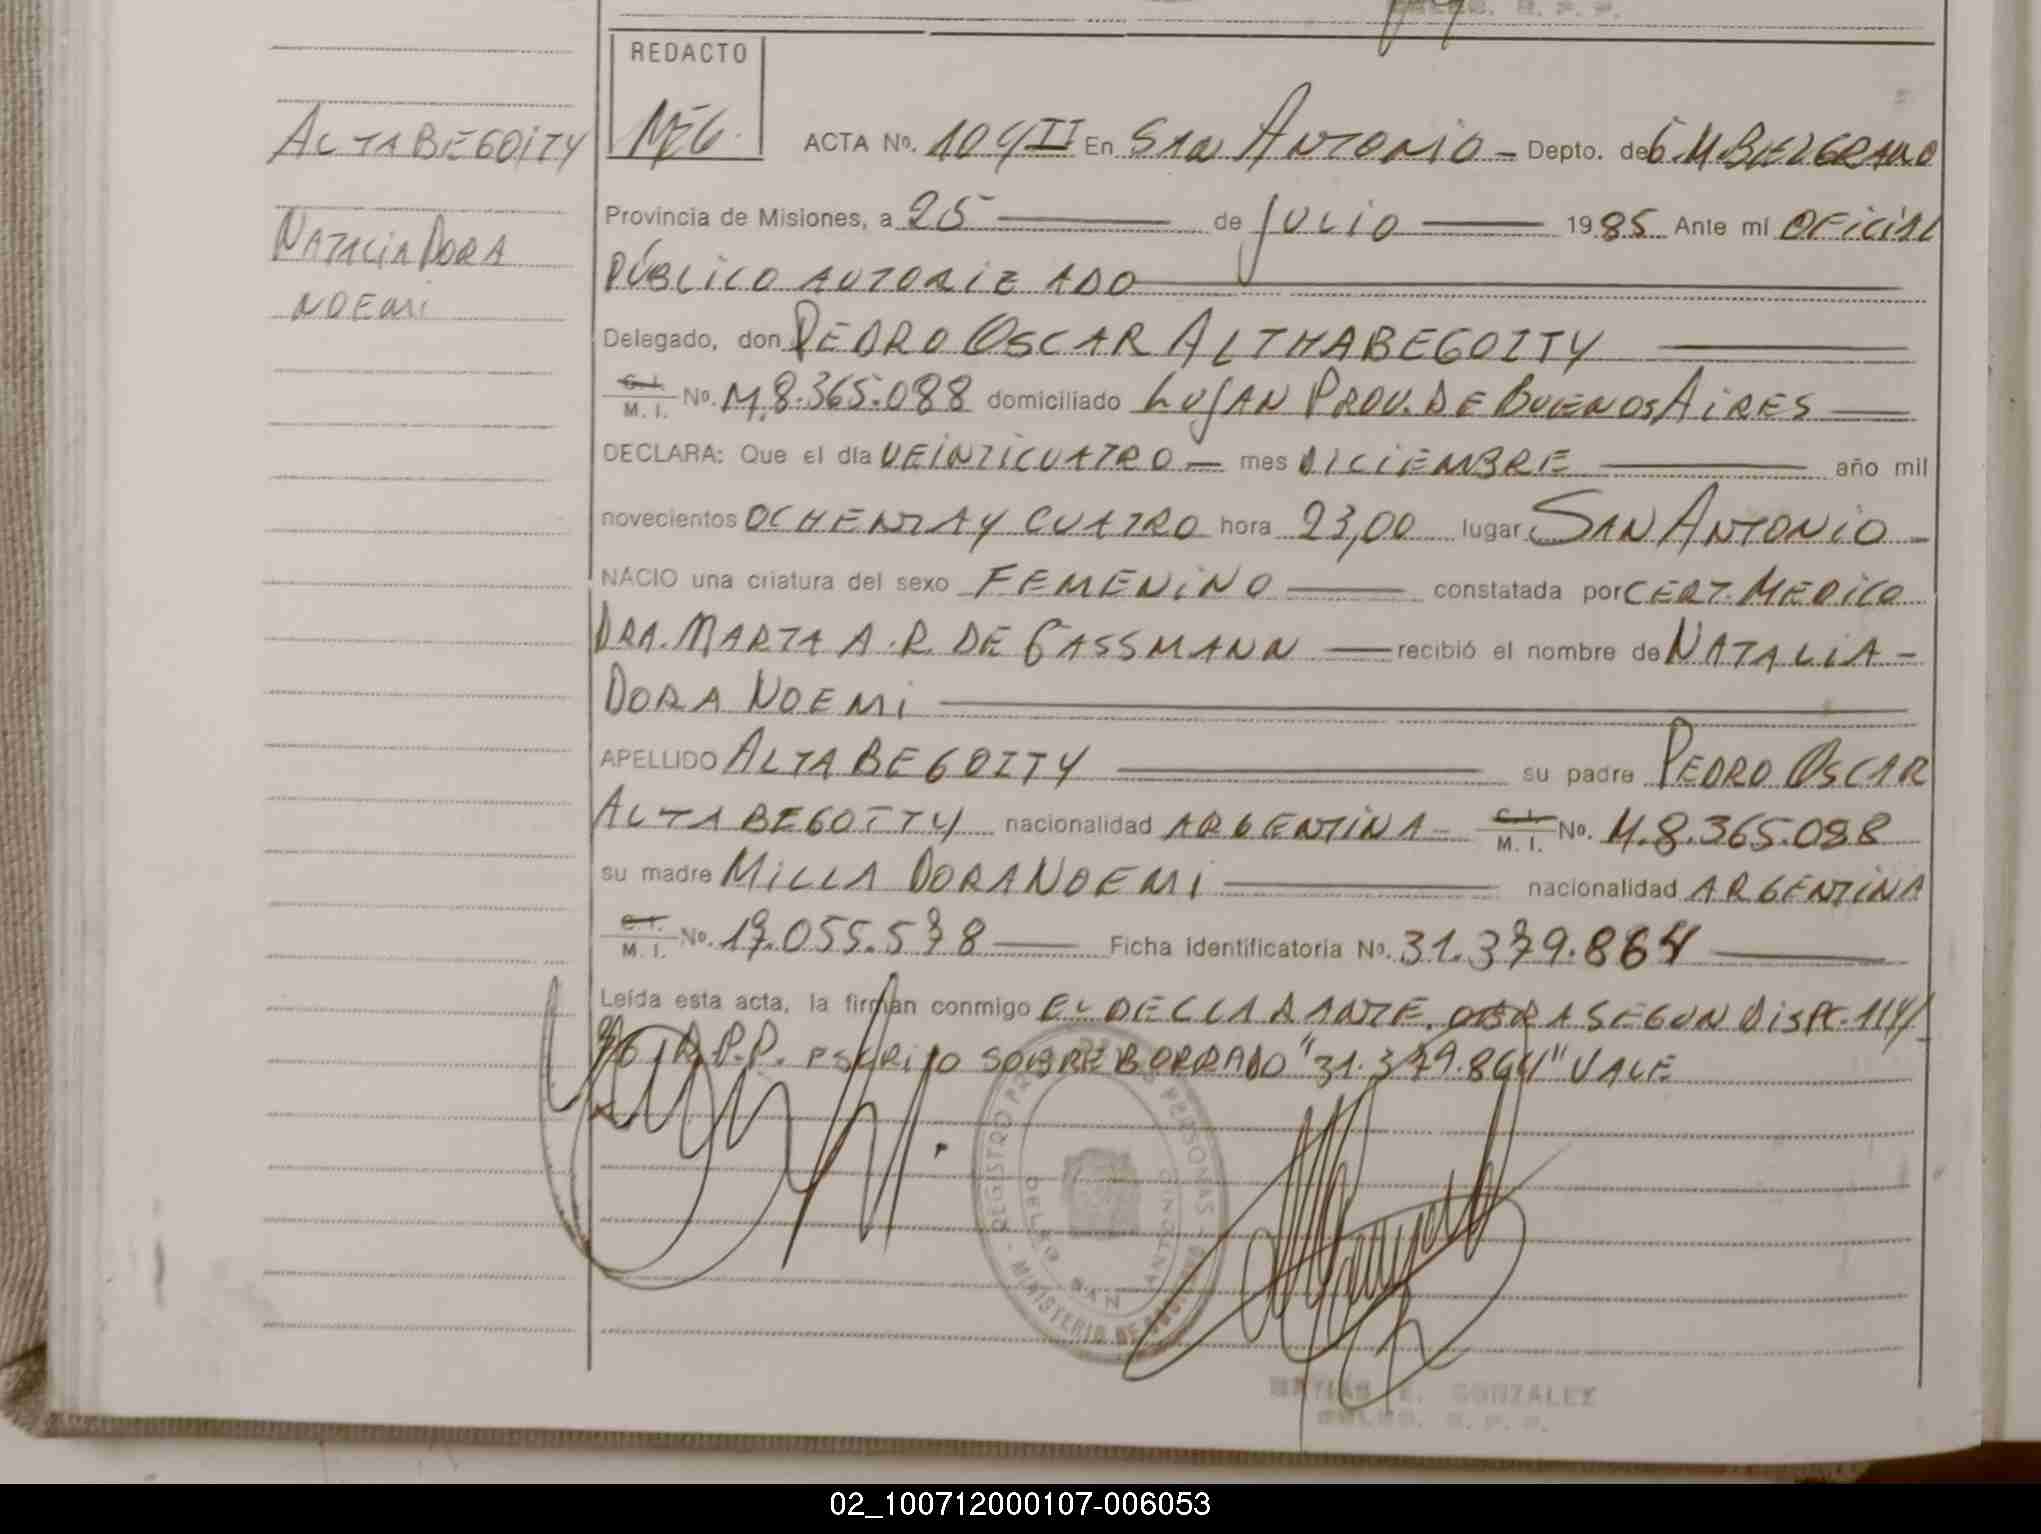 REDACTO
ALTABEGOITY
ACTA No. 109 II En SAN ANTONIO - Depto. de G.M. BELGRANO
Provincia de Misiones, a 25 de JULIO 1985 Ante mi OFICIAL
NATALIA DORA
NOEMI
PÚBLICO AUTORIZADO
Delegado, don PEDRO OSCAR ALTHABEGOITY
C. I.
M. I. No. M.8.365.088 domiciliado LUJAN PROV. DE BUENOS AIRES
DECLARA: Que el día VEINTICUATRO - mes DICIEMBRE año mil
novecientos OCHENTA Y CUATRO hora 23,00 lugar SAN ANTONIO -
NACIO una criatura del sexo FEMENINO constatada por CERT. MEDICO
DRA. MARTA A. R. DE GASSMANN recibió el nombre de NATALIA -
DORA NOEMI
APELLIDO ALTABEGOITY su padre PEDRO OSCAR
ALTABEGOITY nacionalidad ARGENTINA - C. I. M. I. No. M.8.365.088
su madre MILLA DORA NOEMI nacionalidad ARGENTINA
C. I.
M. I. No. 17.055.578 Ficha identificatoria No. 31.379.864
Leída esta acta, la firman conmigo EL DECLARANTE, OBRA SEGUN DISPC. 114/
R.P.P. ESCRITO SOBRE BORRADO "31.379.864" VALE
REGISTRO PERSONAS - MINISTERIO DE
DELEG. SAN ANTONIO
E. GONZALEZ
02_100712000107-006053